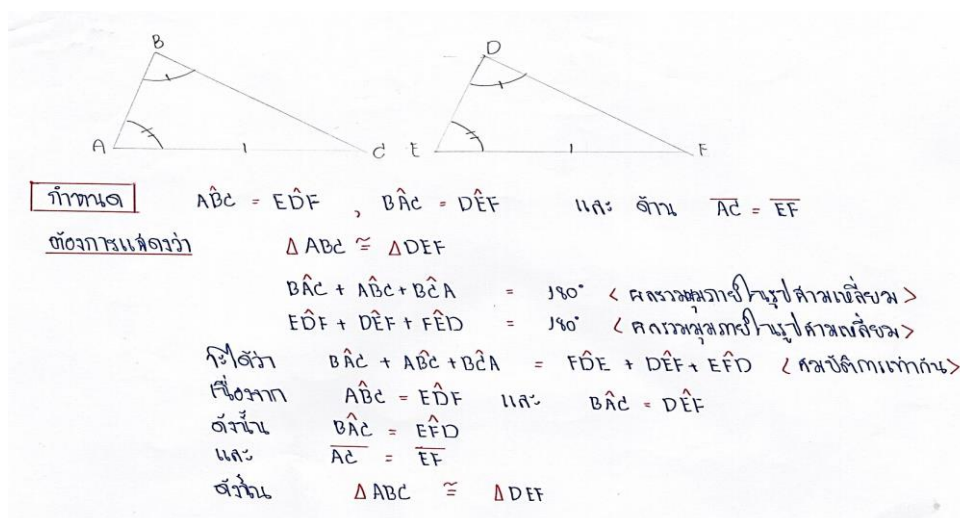 B D
A C E F
กำหนด AB̂C = ED̂F , BÂC = DÊF และ ด้าน A̅C̅ = E̅F̅
ต้องการแสดงว่า Δ ABC ≅ Δ DEF
BÂC + AB̂C + BĈA = 180° < ผลรวมมุมภายในรูปสามเหลี่ยม >
ED̂F + DÊF + FÊD = 180° < ผลรวมมุมภายในรูปสามเหลี่ยม >
จะได้ว่า BÂC + AB̂C + BĈA = FD̂E + DÊF + EF̂D < สมบัติการเท่ากัน >
เนื่องจาก AB̂C = ED̂F และ BÂC = DÊF
ดังนั้น BÂC = EF̂D
และ A̅C̅ = E̅F̅
ดังนั้น Δ ABC ≅ Δ DEF